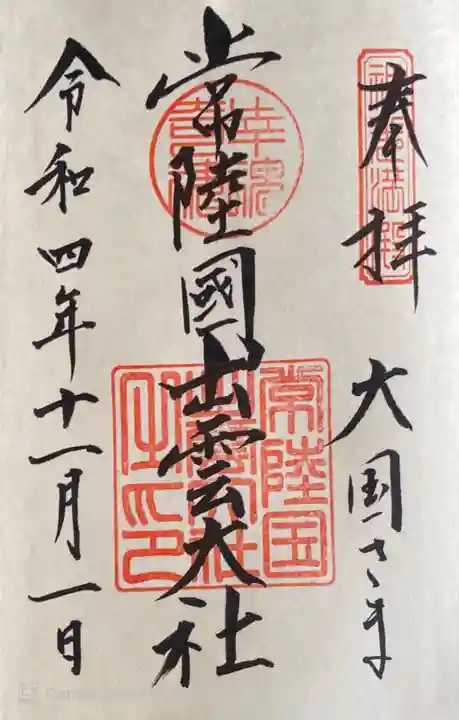 奉拝
大国さま
常陸國出雲大社
常陸国
出雲大社
之印
幸魂
令和四年十一月一日